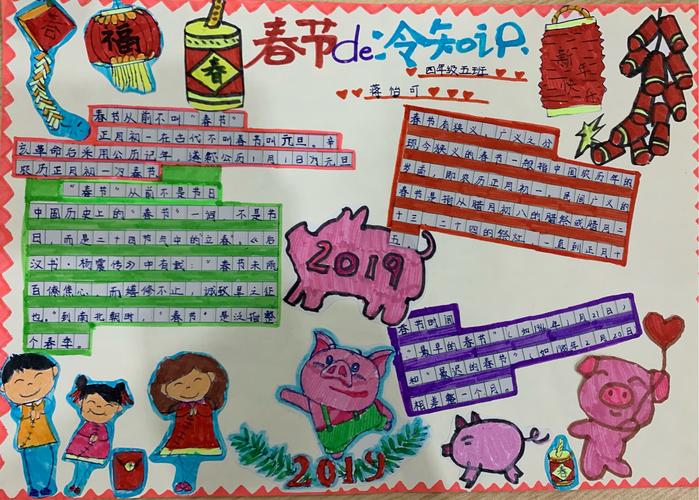 春
福
春
春节de冷知识
四年级五班
蒋怡可
新年快乐
春节从前不叫“春节”
正月初一在古代不叫春节叫元旦。辛
亥革命后采用公历记年,遂称公历1月1日为元旦
农历正月初一为春节
“春节”从前不是节日
中国历史上的“春节”一词,不是节
日,而是二十四节气中的立春,《后
汉书·杨震传》中有载:“春节未雨
百僚焦心,而缮修不止,诚致旱之征
也。”到南北朝时,“春节”是泛指整
个春季。
春节有狭义、广义之分
现今狭义的春节一般指中国农历年的
岁首,即农历正月初一,民间广义的
春节是指从腊月初八的腊祭或腊月二
十三、二十四的祭灶,一直到正月十
五
2019
春节时间
“最早的春节”(如1966年1月21日)
和“最迟的春节”(如1985年2月20日
相差整一个月。
2019
春